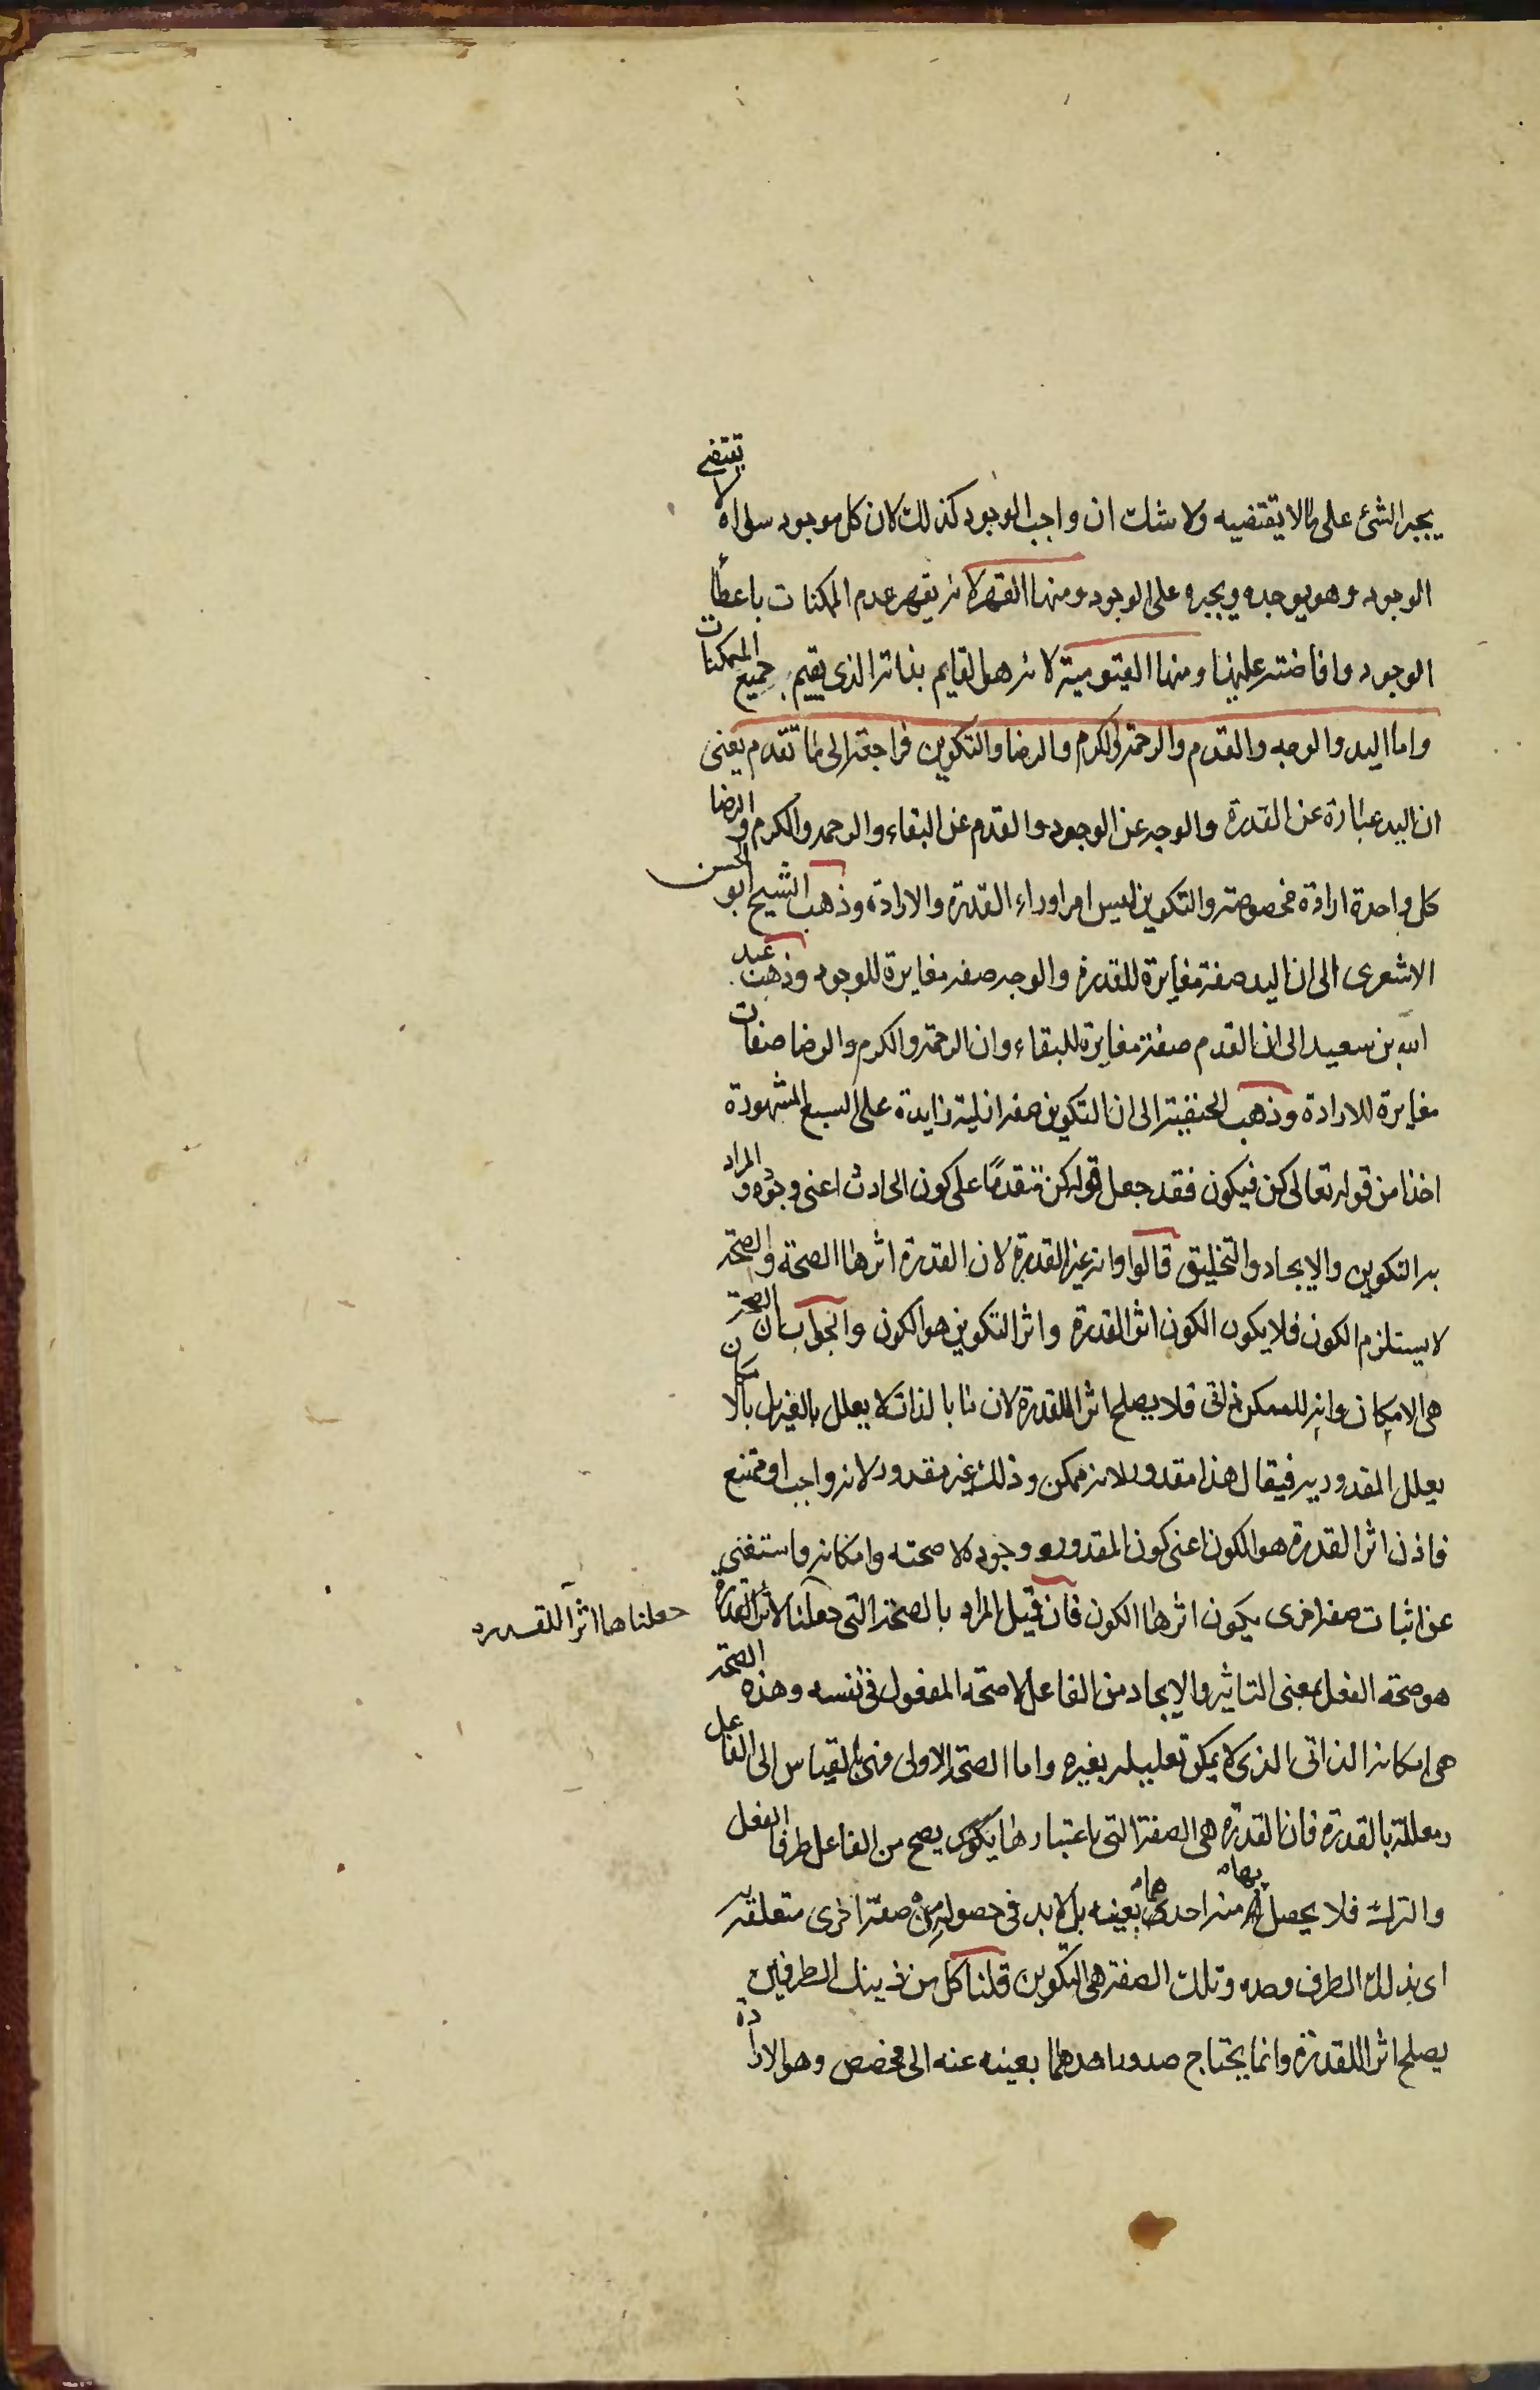 يجبر الشئ على ما لا يقتضيه ولا شك ان واجب الوجود كذلك لان كل موجود سواه لا يقتضى
الوجود وهو يوجده ويجبره على الوجود ومنها القهر لانه يقهر عدم الممكنات باعطأ
الوجود وافاضته عليها ومنها القيومية لانه هو القايم بذاته الذى يقيم جميع الممكنات
واما اليد والوجه والقدم والرحمة والكرم والرضا والتكوين فراجعة الى ما تقدم يعنى
ان اليد عبارة عن القدرة والوجه عن الوجود والقدم عن البقاء والرحمه والكرم والرضا
كل واحدة ارادة مخصوصة والتكوين ليس امرا وراء القدرة والارادة وذهب الشيخ ابو الحسن
الاشعرى الى ان اليد صفة مغايرة للقدرة والوجه صفه مغايرة للوجود وذهب عبد
الله بن سعيد الى ان القدم صفة مغايرة للبقاء وان الرحمة والكرم والرضا صفات
مغايرة للارادة وذهب الحنفية الى ان التكوين صفه ازلية زايدة على السبع المشهورة
اخذا من قوله تعالى كن فيكون فقد جعل قوله كن متقدمًا على كون الحادث اعنى وجوده والمراد
به التكوين والايجاد والتخليق قالوا وانه غير القدرة لان القدرة اثرها الصحة والصحة
لا يستلزم الكون فلا يكون الكون اثر القدرة واثر التكوين هو الكون والجواب ان الصحة
هى الامكان وانه للممكن ذاتى فلا يصلح اثرا للقدرة لان ما بالذات لا يعلل بالغير بل بالامكان
يعلل المقدوريه فيقال هذا مقدور لانه ممكن وذلك غير مقدور لانه واجب او ممتنع
فاذن اثر القدرة هو الكون اعنى كون المقدور ووجوده لا صحته وامكانه فاستغنى
عن اثبات صفه اخرى يكون اثرها الكون فان قيل المراد بالصحة التى جعلنا لاثر القدرة
جعلناها اثرآ للقدره
هو صحة الفعل بمعنى التاثير والايجاد من الفاعل لا صحة المفعول فى نفسه وهذه الصحة
هى امكانه الذاتى الذى لا يمكن تعليله بغيره واما الصحة الاولى فهى بالقياس الى الفاعل
ومعللة بالقدرة فان القدرة هى الصفة التى باعتبارها يكون يصح من الفاعل طرفا الفعل
والترك فلا يحصل بها منه احدهما بعينه بل لابد فى حصوله من صفة اخرى متعلقة به
اى بذلك الطرف وحده وتلك الصفة هى التكوين قلنا كل من ذينك الطرفين
يصلح اثرا للقدرة وانما يحتاج صدور احدهما بعينه عنه الى مخصص وهو الارادة